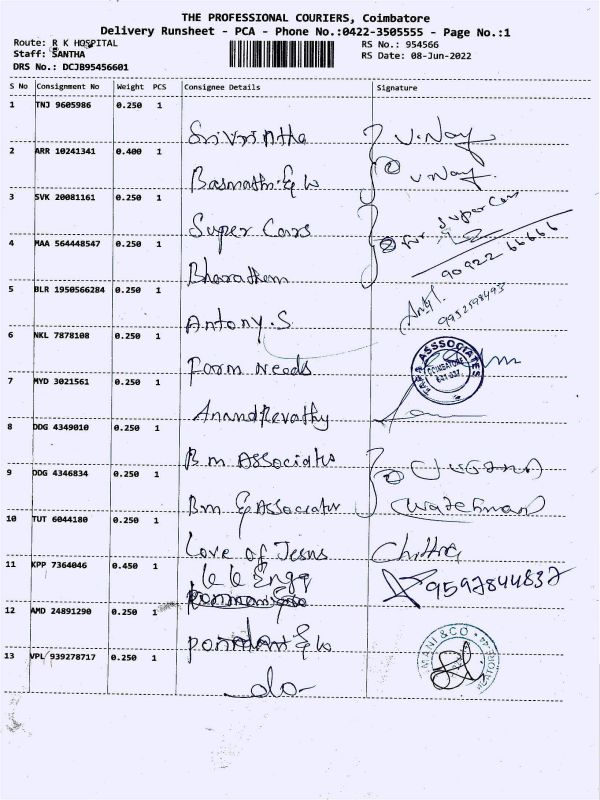 THE PROFESSIONAL COURIERS, Coimbatore
Delivery Runsheet - PCA - Phone No.:0422-3505555 - Page No.:1
Route: R K HOSPITAL
Staff: SANTHA
DRS No.: DCJB95456601
RS No.: 954566
RS Date: 08-Jun-2022
S No Consignment No Weight PCS Consignee Details Signature
1 TNJ 9605986 0.250 1
2 ARR 10241341 0.400 1
Super Cars
3 SVK 20081161 0.250 1
for Super Cars
90922 66666
4 MAA 564448547 0.250 1
5 BLR 1950566284 0.250 1
Antony. S
9952598493
6 NKL 7878108 0.250 1
Form Needs
ASSSOCIATES
COIMBATORE
7 MYD 3021561 0.250 1
AnandRevathy
8 DDG 4349010 0.250 1
B m Associates
9 DDG 4346834 0.250 1
Bm & Associates
(watchman)
10 TUT 6044180 0.250 1
Love of Jesus
Chithra
11 KPP 7364046 0.450 1
9597844837
12 AMD 24891290 0.250 1
13 VPL 939278717 0.250 1
-do-
MANI & CO